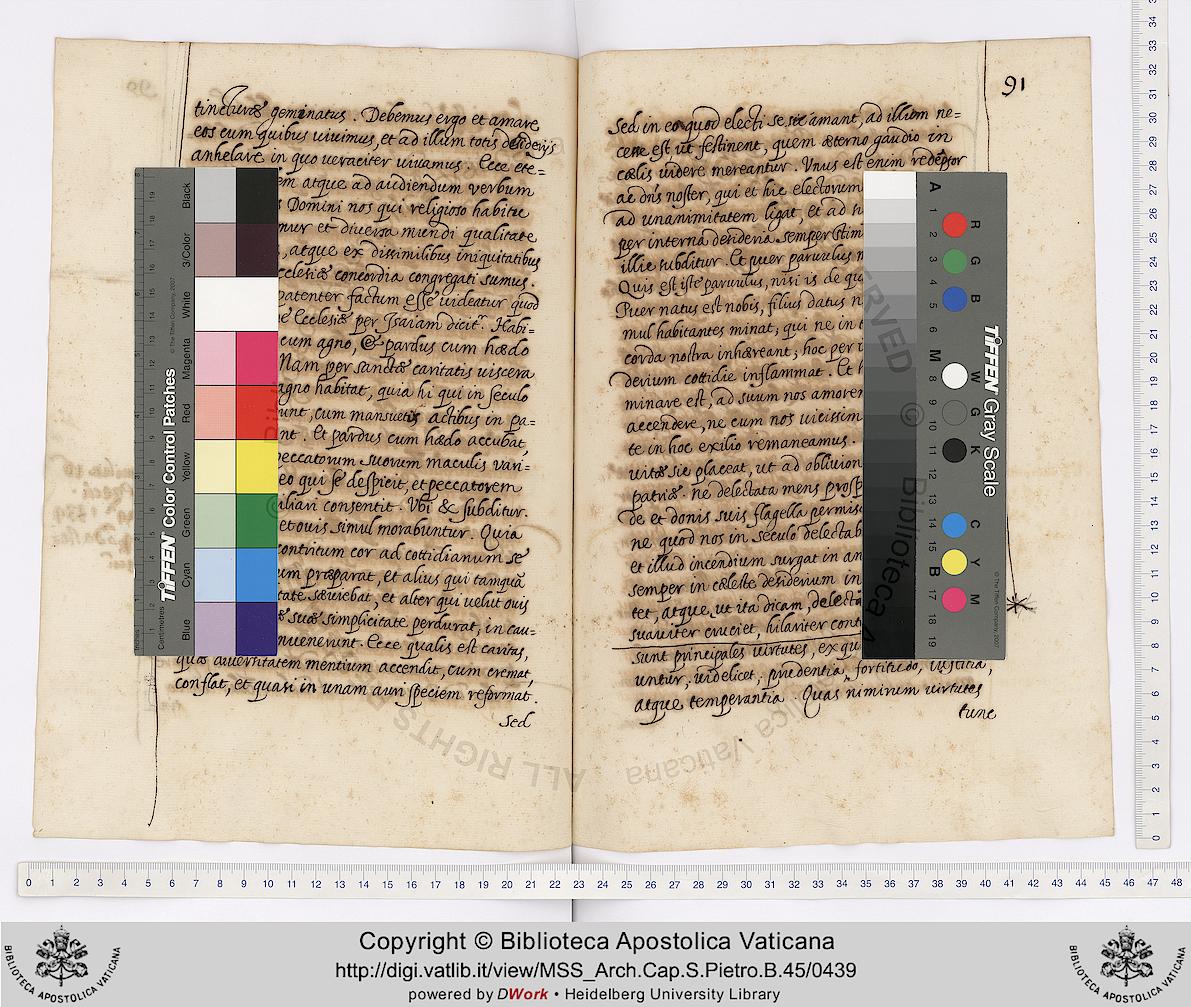 tincturæ geminatus. Debemus ergo et amare
eos cum quibus uiuimus, et ad illum totis desiderijs
anhelare in quo ueraciter uiuamus. Ecce ete=
em atque ad audiendum verbum
Domini nos qui religioso habitu
mur et diuersa mundi qualitate
, atque ex dissimilibus iniquitatibus
cclesiæ concordia congregati sumus.
patenter factum esse uideatur quod
e Ecclesiæ per Isaiam dicitr. Habi=
cum agno, & pardus cum hædo
Nam per sanctæ caritatis uiscera
agno habitat, quia hi qui in seculo
unt, cum mansuetis actibus in pa=
nt. Et pardus cum hædo accubat,
peccatorum suorum maculis vari=
eo qui se despicit, et peccatorem
aliari consentit. Vbi & subditur.
et ouis simul morabuntur. Quia
contritum cor ad cottidianum se
um præparat, et alius qui tamquã
tate sæuiebat, et alter qui uelut ouis
suæ simplicitate perdurat, in cau=
nuenerunt. Ecce qualis est caritas,
quæ mentium accendit, cum cremat,
conflat, et quasi in unam auri speciem reformat.
Sed
91
Sed in eo quod electi sese amant, ad illum ne=
cesse est, ut festinent, quem æterno gaudio in
cælis uidere mereantur. Vnus est enim redeptor
ac dns noster, qui et hic electorum
ad unanimitatem ligat, et ad
per interna desideria semper stim
illic subditur. Et puer paruulus m
Quis est iste paruulus, nisi is de qu
Puer natus est nobis, filius datus n
mul habitantes minat; qui ne in t
corda nostra inhæreant; hoc per i
derium cottidie inflammat. Et h
minare est, ad suum nos amorem
accendere, ne cum nos uicissim
te in hoc exilio remaneamus.
uitæ sic placeat, ut ad obliuion
patriæ. ne delectata mens prosp
de et donis suis flagella permisc
ne quod nos in seculo delectab
et illud incendium surgat in an
semper in cæleste desiderium in
tet, atque, ut ita dicam, delecta
suauiter cruciet, hilariter cont
sunt principales uirtutes, ex qu
untur, uidelicet, prudentia, fortitudo, iustitia,
atque temperantia. Quas nimirum uirtutes
tunc
TIFFEN Color Control Patches
© The Tiffen Company, 2007
Centimetres
Blue
Cyan
Green
Yellow
Red
Magenta
White
3/Color
Black
TIFFEN Gray Scale
© The Tiffen Company, 2007
A 1 2 3 4 5 6 M 8 9 10 11 12 13 14 15 B 17 18 19
R G B W G K C Y M
0 1 2 3 4 5 6 7 8 9 10 11 12 13 14 15 16 17 18 19 20 21 22 23 24 25 26 27 28 29 30 31 32 33 34 35 36 37 38 39 40 41 42 43 44 45 46 47 48
Copyright © Biblioteca Apostolica Vaticana
http://digi.vatlib.it/view/MSS_Arch.Cap.S.Pietro.B.45/0439
powered by DWork • Heidelberg University Library
BIBLIOTECA APOSTOLICA VATICANA
BIBLIOTECA APOSTOLICA VATICANA